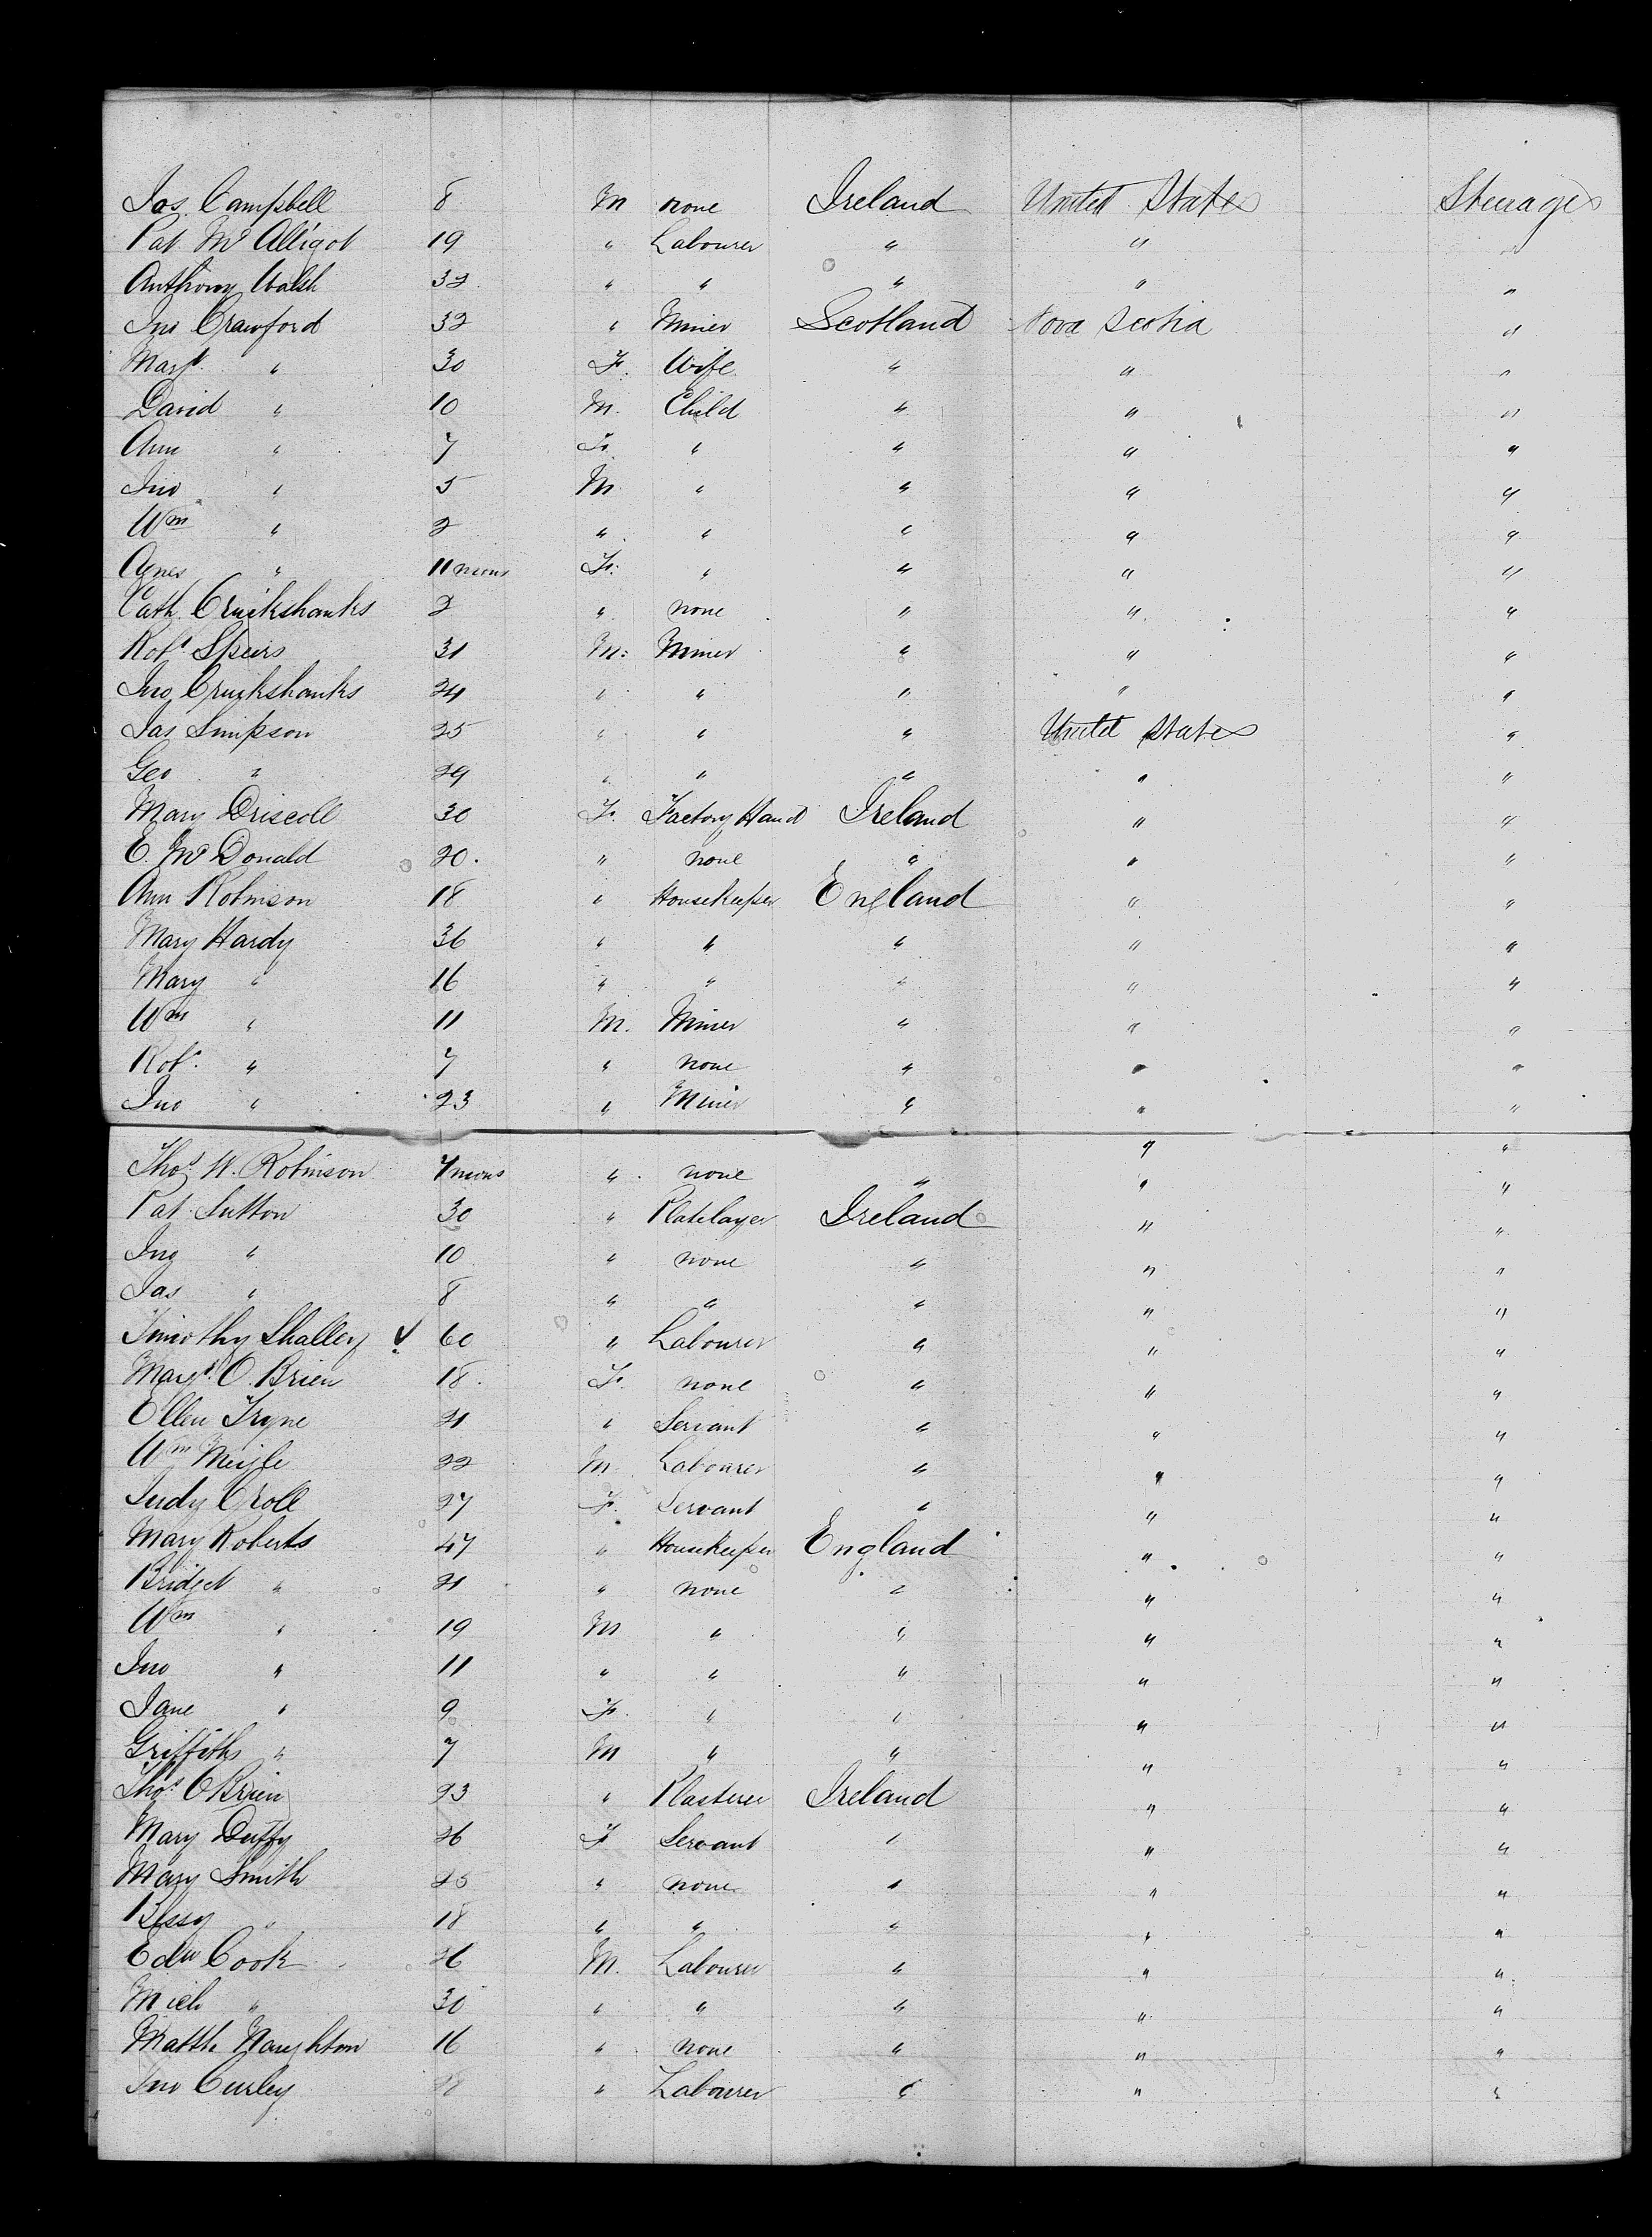 Jas. Campbell 8 M none Ireland United States Steerage
Pat Mc Alligot 19 " Labourer " " "
Anthony Walsh 32 " " " " "
Jno Crawford 32 " Miner Scotland Nova Scotia "
Margt. " 30 F. Wife " " "
David " 10 M. Child " " "
Ann " 7 F. " " " "
Jno " 5 M. " " " "
Wm " 2 " " " " "
Agnes " 11 mons F. " " " "
Cath. Cruikshanks 2 " none " " "
Robt Speirs 31 M. Miner " " "
Jno Cruikshanks 24 " " " " "
Jas Simpson 25 " " " United States "
Geo " 29 " " " " "
Mary Driscoll 30 F. Factory Hand Ireland " "
E. Mc Donald 20. " none " " "
Ann Robinson 18 " Housekeeper England " "
Mary Hardy 36 " " " " "
Mary " 16 " " " " "
Wm " 11 M. Miner " " "
Robt. " 7 " none " " "
Jno " 23 " Miner " " "
" "
Thos. W. Robinson 7 mons " none " " "
Pat. Sutton 30 " Platelayer Ireland " "
Jno " 10 " none " " "
Jas " 8 " " " " "
Timothy Shalley 60 " Labourer " " "
Margt. O. Brien 18. F. none " " "
Ellen 21 " Servant " " "
Wm 22 M Labourer " " "
Judy Croll 27 F. Servant " " "
Mary Roberts 47 " Housekeeper England " "
Bridget " 21 " none " " "
Wm " 19 M " " " "
Jno " 11 " " " " "
Jane " 9 F. " " " "
Griffiths " 7 M " " " "
Thos. O Brien 23 " Plasterer Ireland " "
Mary Duffy 26 F Servant " " "
Mary Smith 25 " none " " "
Bessy " 18 " " " " "
Edw Cook 26 M. Labourer " " "
Mich " 30 " " " " "
Matth. Naughton 16 " none " " "
Jno Curley " Labourer " "  "